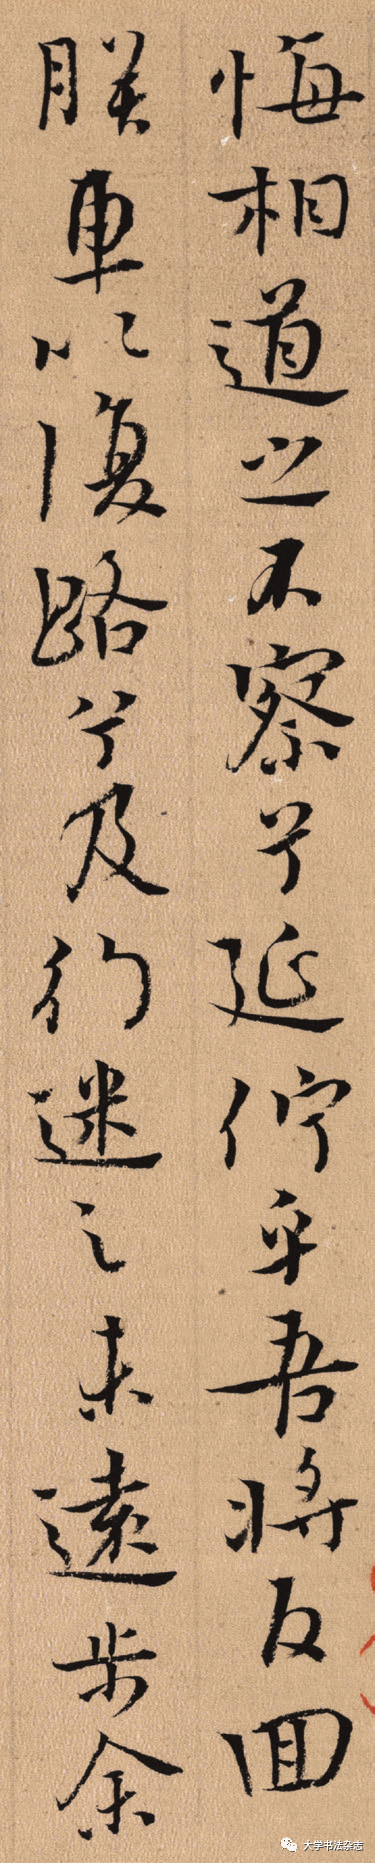 悔相道之不察兮延佇乎吾将反回
朕車以復路兮及行迷之未遠步余
大学书法杂志